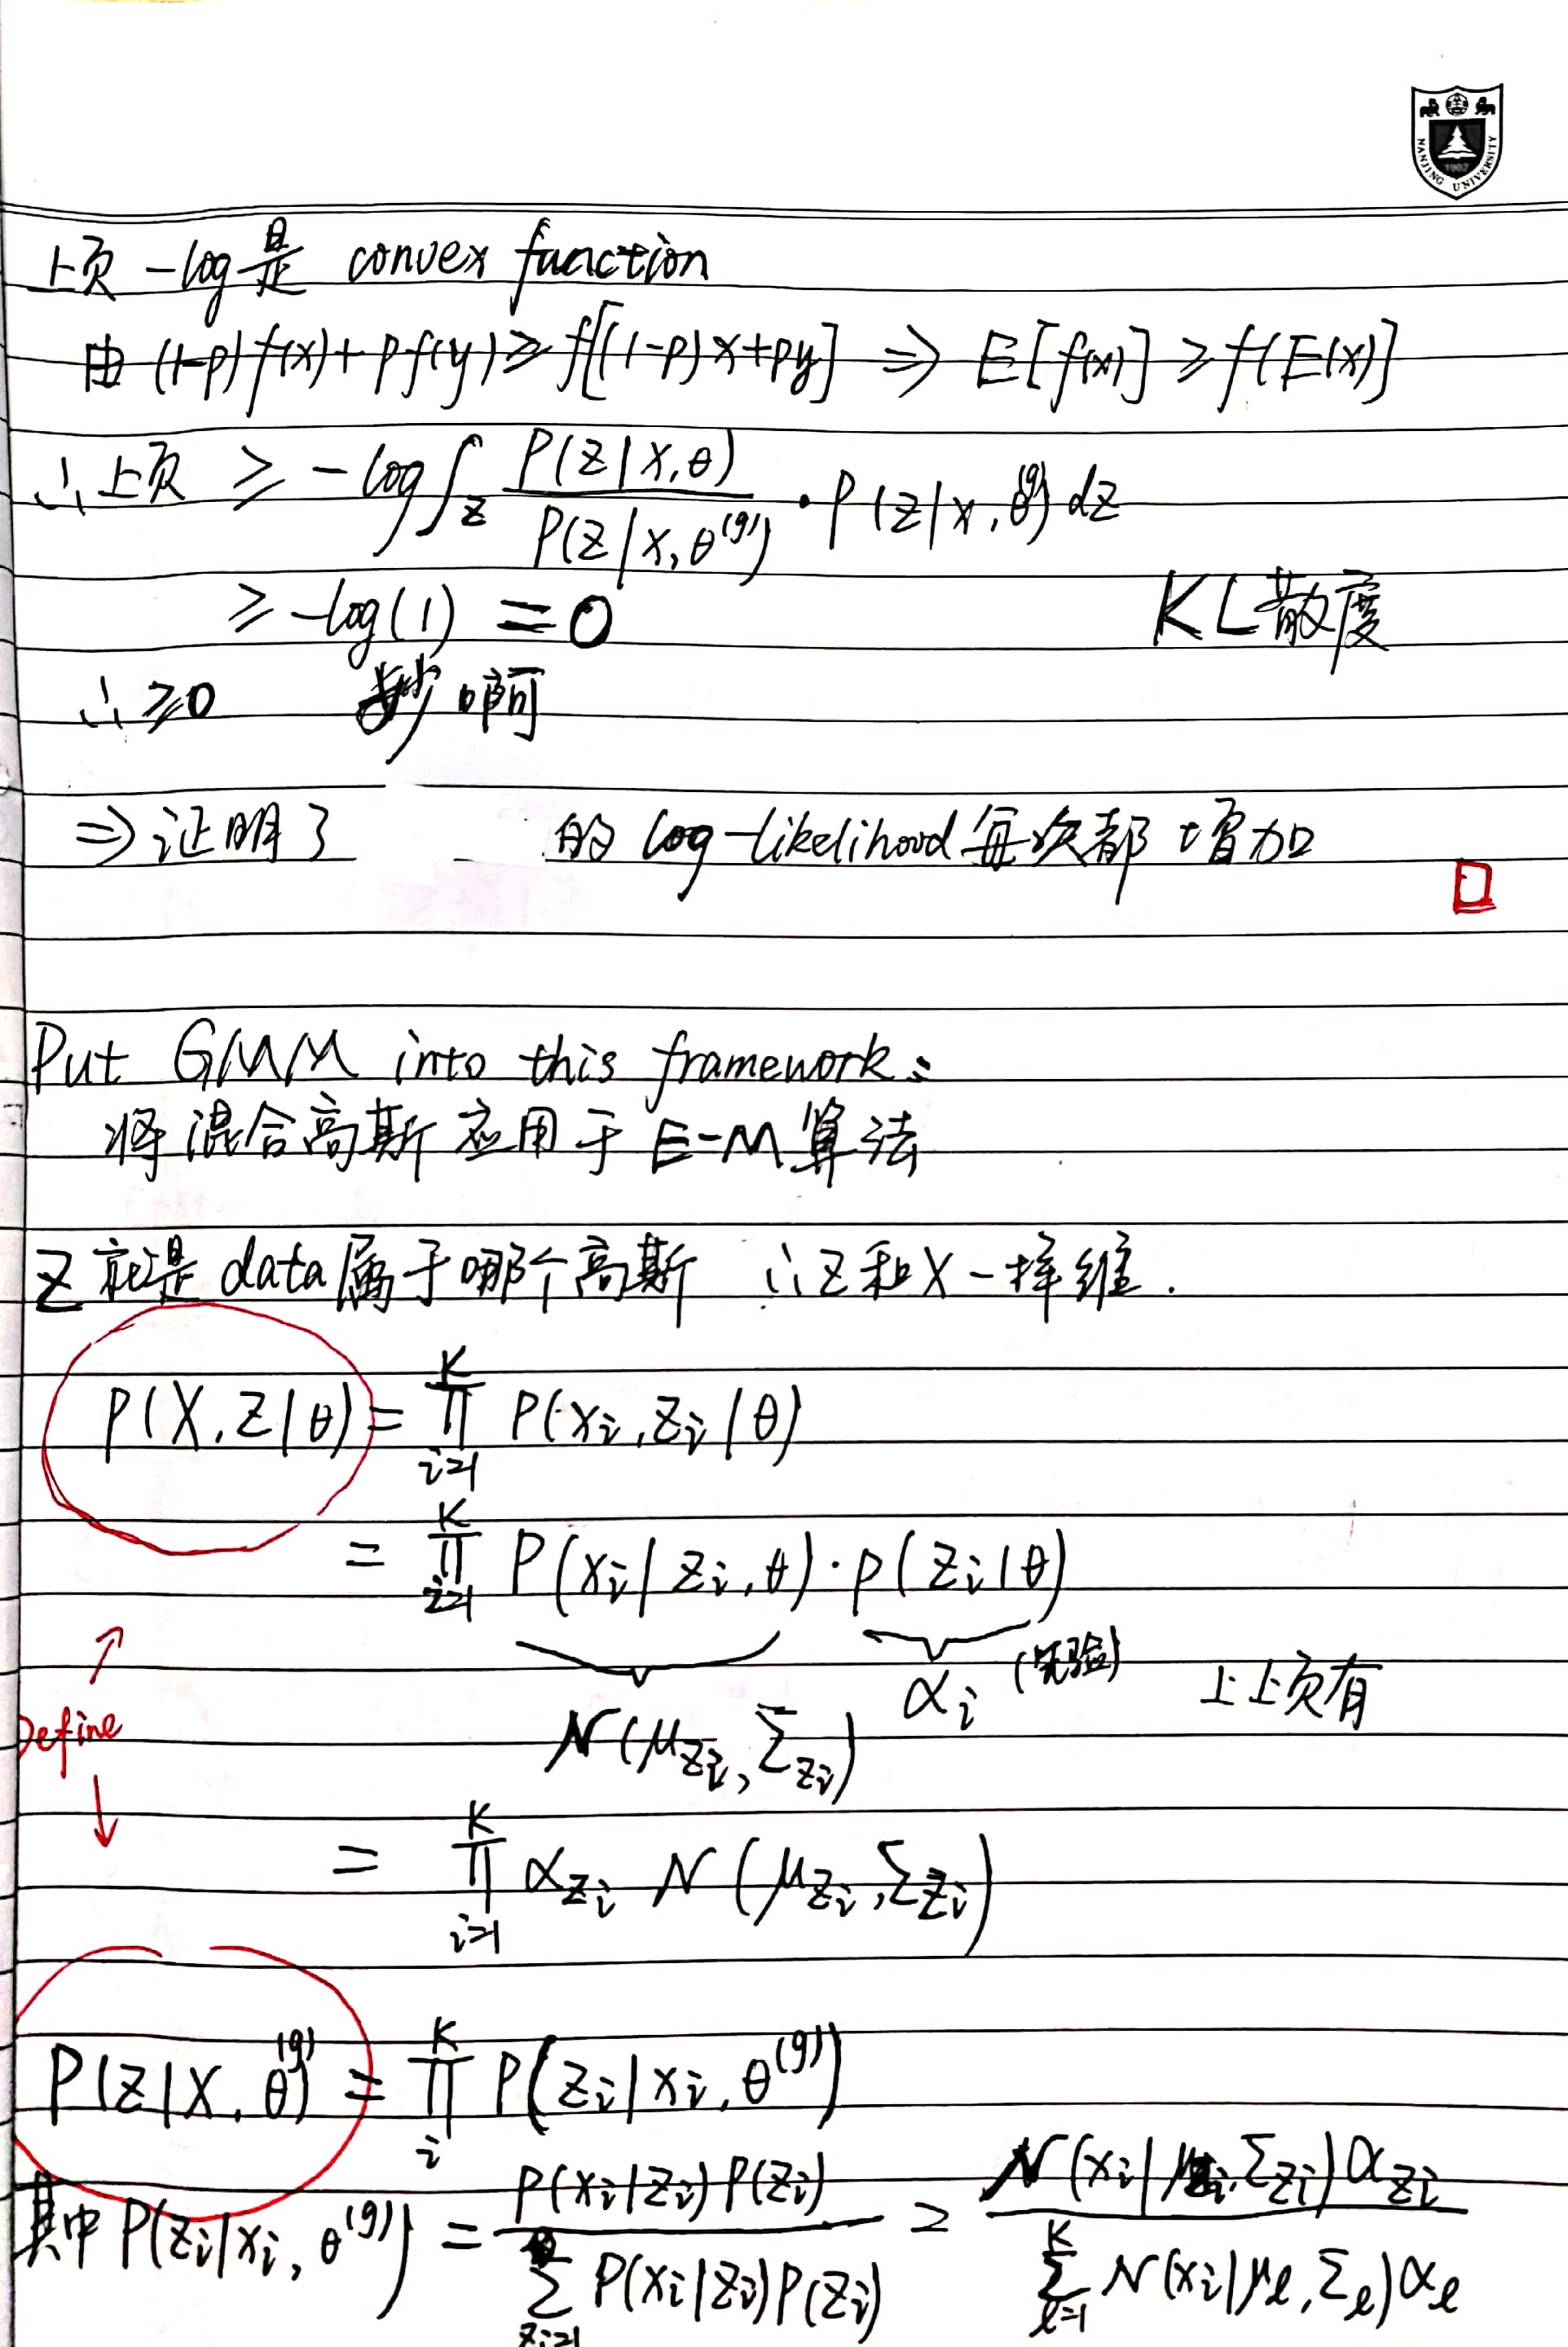 NANJING UNIVERSITY
1902
上页 -log是 convex function
由 (1-p)f(x)+pf(y)≥f[(1-p)x+py] ⇒ E[f(x)]≥f(E(x)]
∴上页 ≥ -log∫_Z P(Z|X,θ)/P(Z|X,θ^(g)) · P(Z|X,θ^(g)) dZ
≥ -log(1) = 0 KL散度
∴≥0 妙啊
⇒证明了 的 log-likelihood每次都增加
□
Put GMM into this framework:
将混合高斯应用于E-M算法
Z就是data属于哪个高斯 ∴Z和X一样维.
P(X,Z|θ) = ∏_{i=1}^K P(x_i,z_i|θ)
= ∏_{i=1}^K P(x_i|z_i,θ)·p(z_i|θ)
N(μ_{z_i},Σ_{z_i}) α_i (先验) 上上页有
Define
= ∏_{i=1}^K α_{z_i} N(μ_{z_i},Σ_{z_i})
P(Z|X,θ^(g)) = ∏_i^K P(z_i|x_i,θ^(g))
其中P(z_i|x_i,θ^(g)) = P(x_i|z_i)P(z_i)/Σ_{z_i=1} P(x_i|z_i)P(z_i) = N(x_i|μ_{z_i},Σ_{z_i})α_{z_i}/Σ_{l=1}^K N(x_i|μ_l,Σ_l)α_l